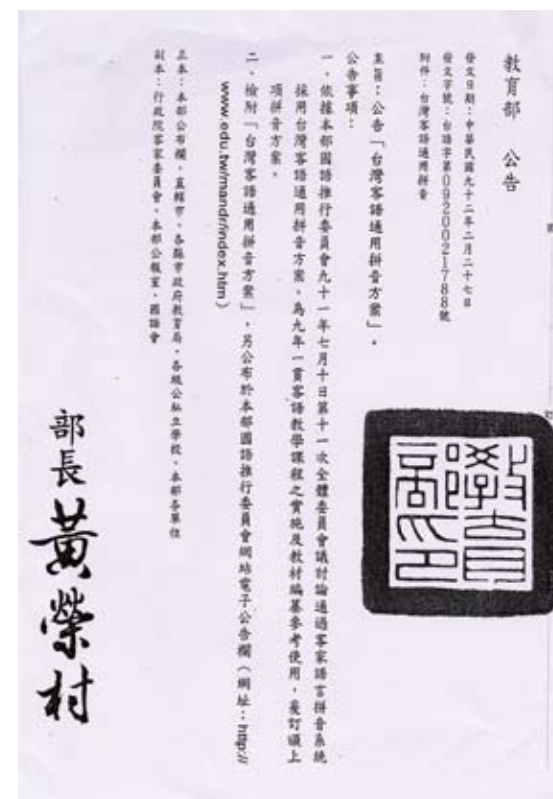 教育部 公告
發文日期：中華民國九十二年二月二十七日
發文字號：台語字第0920021788號
附件：台灣客語通用拼音
主旨：公告「台灣客語通用拼音方案」。
公告事項：
一、依據本部國語推行委員會九十一年七月十日第十一次全體委員會議討論通過客家語言拼音系統
採用台灣客語通用拼音方案，為九年一貫客語教學課程之實施及教材編纂參考使用，爰訂頒上
項拼音方案。
二、檢附「台灣客語通用拼音方案」，另公布於本部國語推行委員會網站電子公告欄（網址：http://
www.edu.tw/mandr/index.htm）
正本：本部公布欄、直轄市、各縣市政府教育局、各級公私立學校、本部各單位
副本：行政院客家委員會、本部公報室、國語會
教育部印
部長 黃榮村